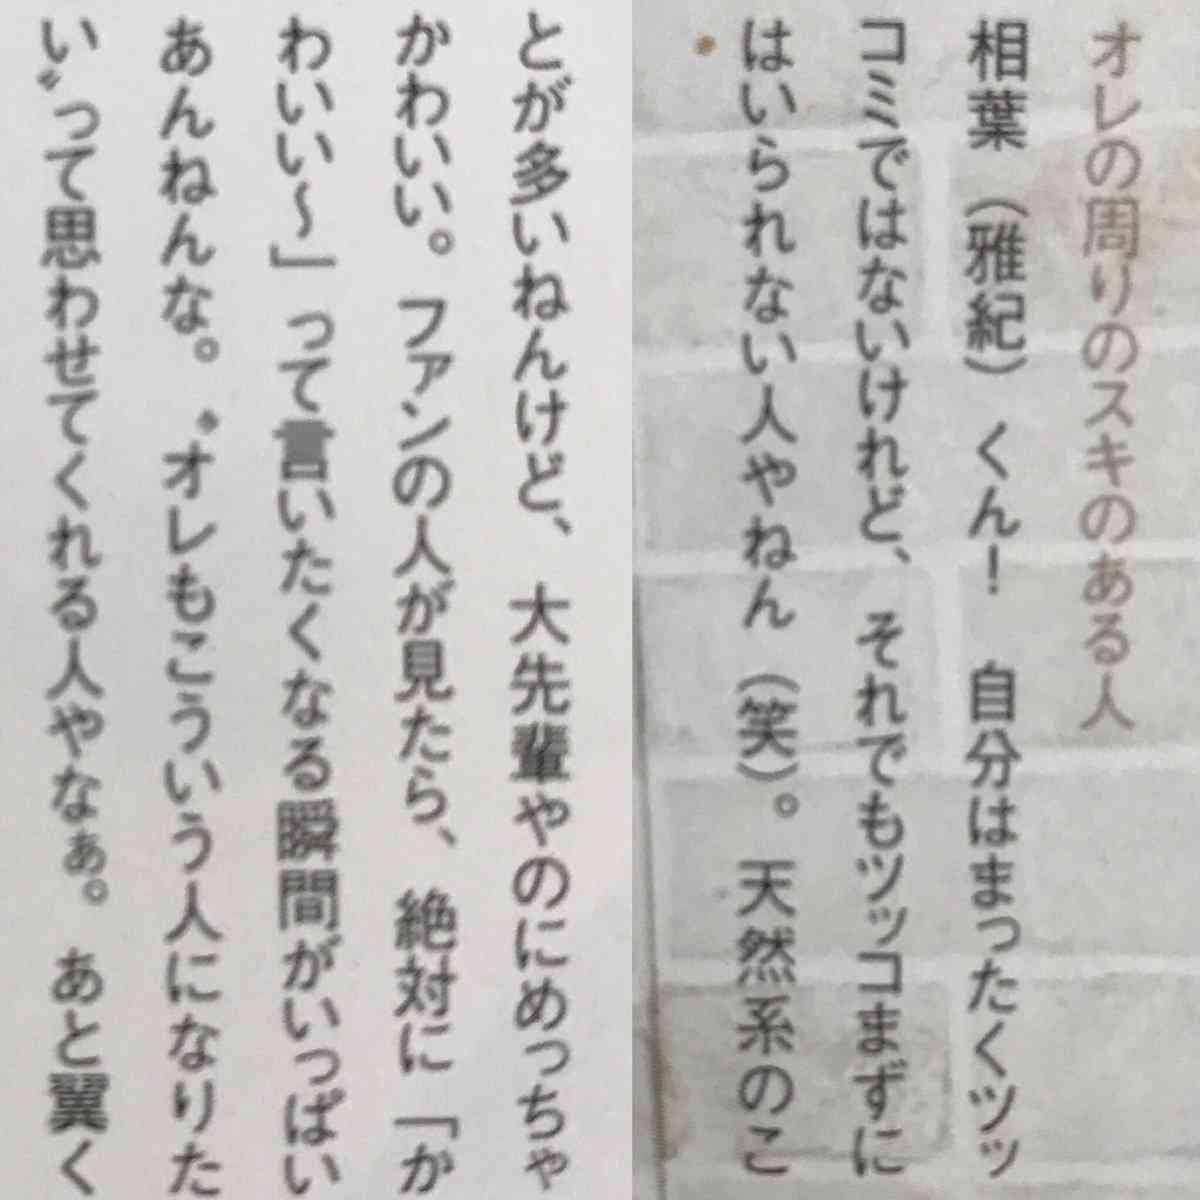 オレの周りのスキのある人
相葉（雅紀）くん！　自分はまったくツッ
コミではないけれど、それでもツッコまずに
はいられない人やねん（笑）。天然系のこ
とが多いねんけど、大先輩やのにめっちゃ
かわいい。ファンの人が見たら、絶対に「か
わいい〜」って言いたくなる瞬間がいっぱい
あんねんな。〝オレもこういう人になりた
い〟って思わせてくれる人やなぁ。あと翼く